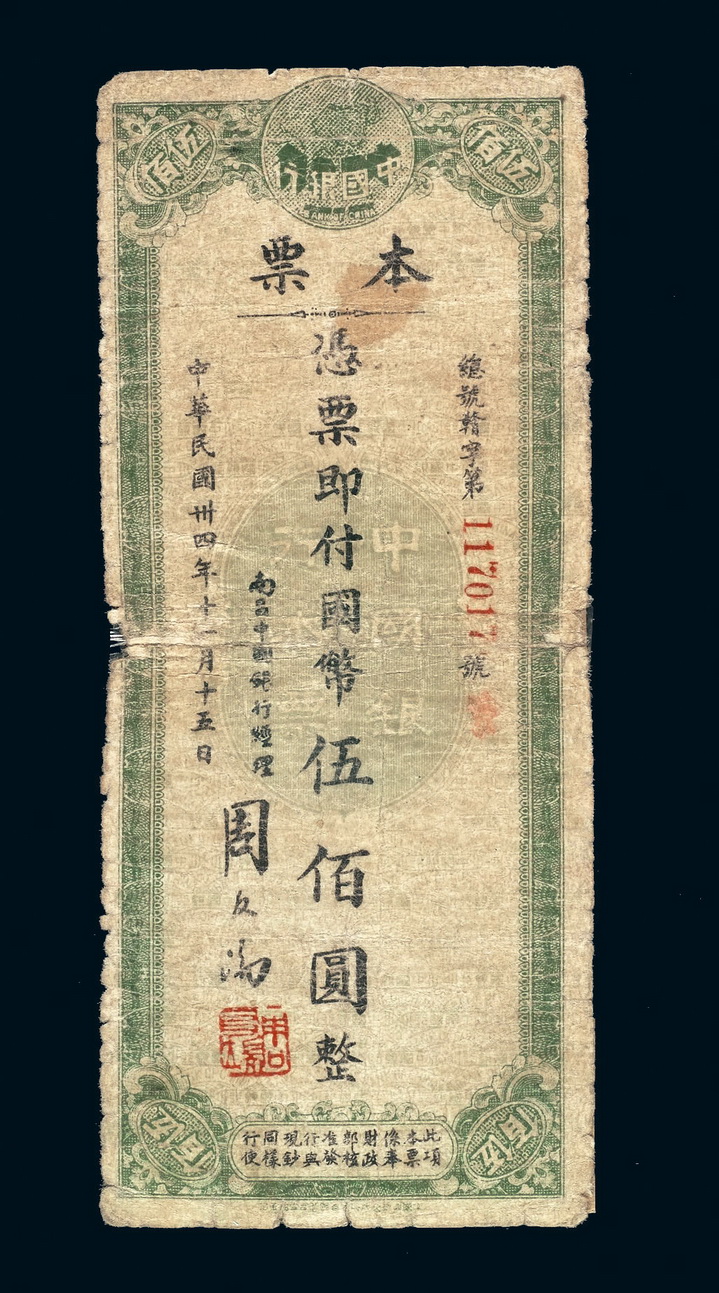 伍佰
中國銀行
BANK OF CHINA
伍佰
本票
總號贛字第117017號
憑票即付國幣伍佰圓整
南昌中國銀行經理
周
中華民國卅四年十一月十五日
中國銀
行本票
伍佰
此項本票係奉財政部核准發行與現鈔同樣行使
伍佰